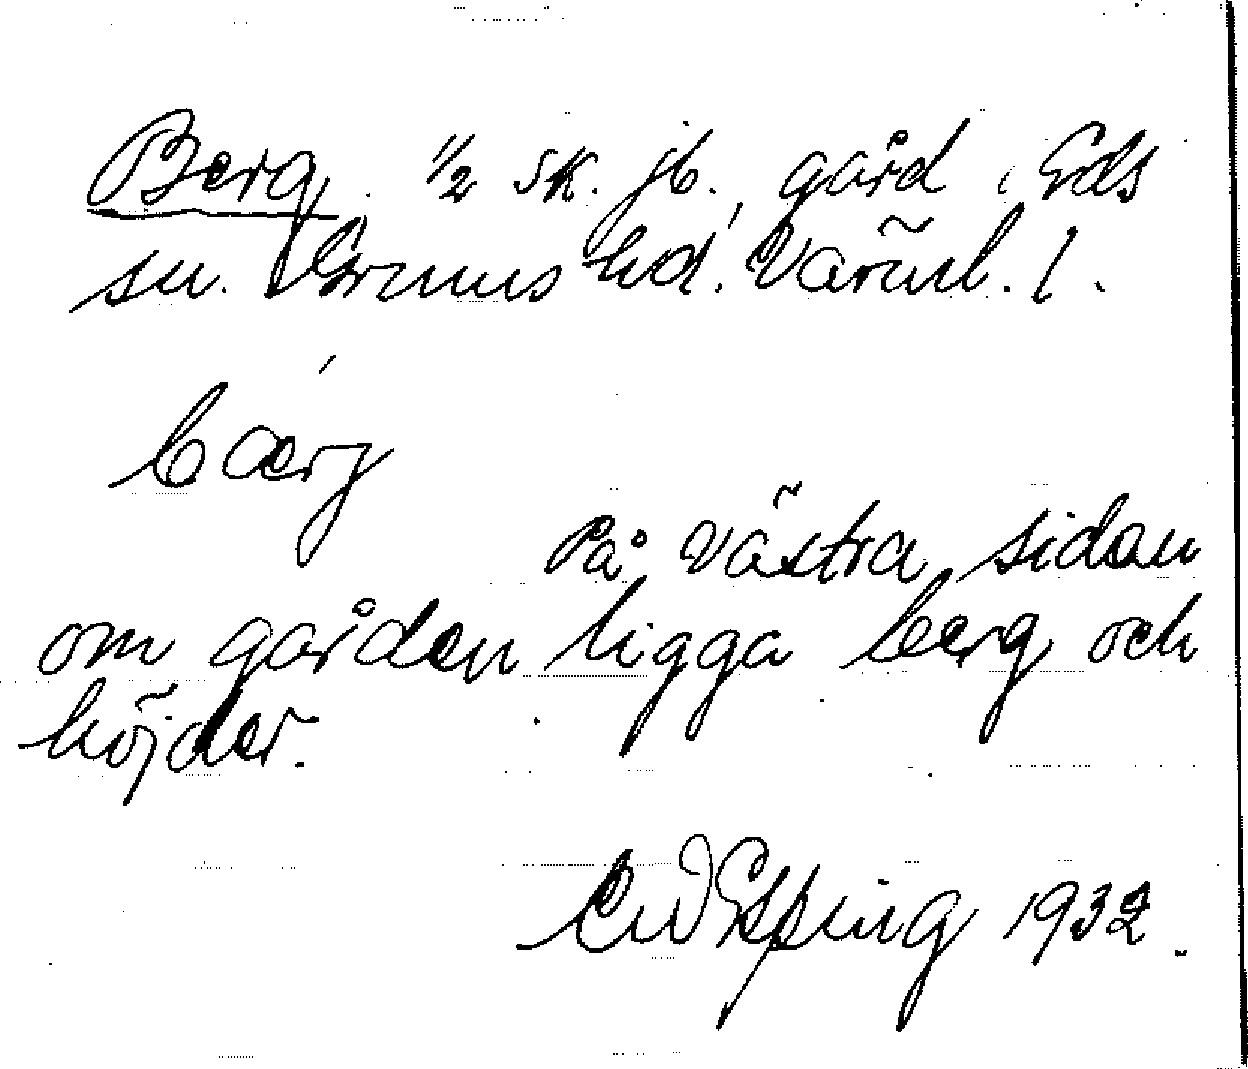 Berg. 1/2 sk. jb., gård i Eds
sn. Grums hd. Värml. l.
bærj
På västra sidan
om gården ligga berg och
höjder.
Epping 1932.